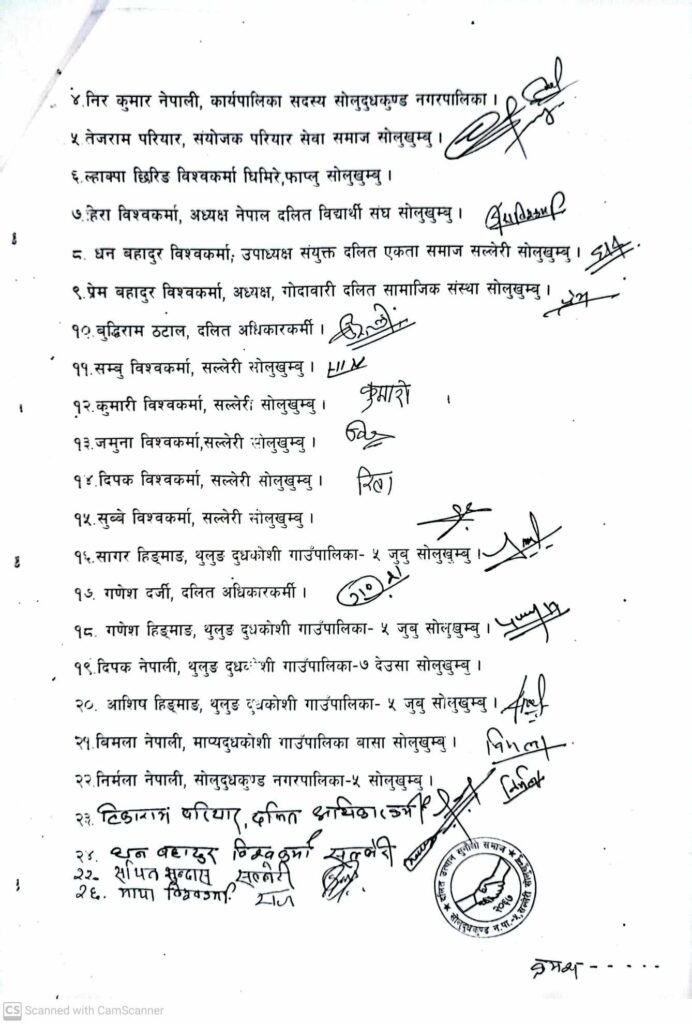 ४.निर कुमार नेपाली, कार्यपालिका सदस्य सोलुदुधकुण्ड नगरपालिका ।
५ तेजराम परियार, संयोजक परियार सेवा समाज सोलुखुम्बु ।
६.ल्हाक्पा छिरिङ विश्वकर्मा घिमिरे,फाप्लु सोलुखुम्बु ।
७.हिरा विश्वकर्मा, अध्यक्ष नेपाल दलित विद्यार्थी संघ सोलुखुम्बु ।
८. धन बहादुर विश्वकर्मा; उपाध्यक्ष संयुक्त दलित एकता समाज सल्लेरी सोलुखुम्बु । धन
९.प्रेम बहादुर विश्वकर्मा, अध्यक्ष, गोदावारी दलित सामाजिक संस्था सोलुखुम्बु । प्रेम
१०.बुद्धिराम ठटाल, दलित अधिकारकर्मी ।
११.सम्बु विश्वकर्मा, सल्लेरी सोलुखुम्बु ।
१२.कुमारी विश्वकर्मा, सल्लेरी सोलुखुम्बु । कुमारी
१३.जमुना विश्वकर्मा,सल्लेरी सोलुखुम्बु ।
१४.दिपक विश्वकर्मा, सल्लेरी सोलुखुम्बु ।
१५.सुब्बे विश्वकर्मा, सल्लेरी सोलुखुम्बु ।
१६.सागर हिङ्माङ, थुलुङ दुधकोशी गाउँपालिका- ५ जुबु सोलुखुम्बु ।
१७. गणेश दर्जी, दलित अधिकारकर्मी ।
१८. गणेश हिङ्माङ, थुलुङ दुधकोशी गाउँपालिका- ५ जुबु सोलुखुम्बु ।
१९.दिपक नेपाली, थुलुङ दुधकोशी गाउँपालिका-७ देउसा सोलुखुम्बु ।
२०. आशिष हिङ्माङ, थुलुङ दुधकोशी गाउँपालिका- ५ जुबु सोलुखुम्बु ।
२१.बिमला नेपाली, माप्यदुधकोशी गाउँपालिका बासा सोलुखुम्बु । बिमला
२२.निर्मला नेपाली, सोलुदुधकुण्ड नगरपालिका-५ सोलुखुम्बु । निर्मला
२३. टिकाराम परियार, दलित अधिकारकर्मी
२४. धन बहादुर विश्वकर्मा सल्लेरी
२५. सुन्दास सल्लेरी
२६. माया विश्वकर्मा
दलित उत्थान सुनौलो समाज
२०६७
सोलुदुधकुण्ड न.पा.-५, सल्लेरी
क्रमश - - - - -
CS Scanned with CamScanner